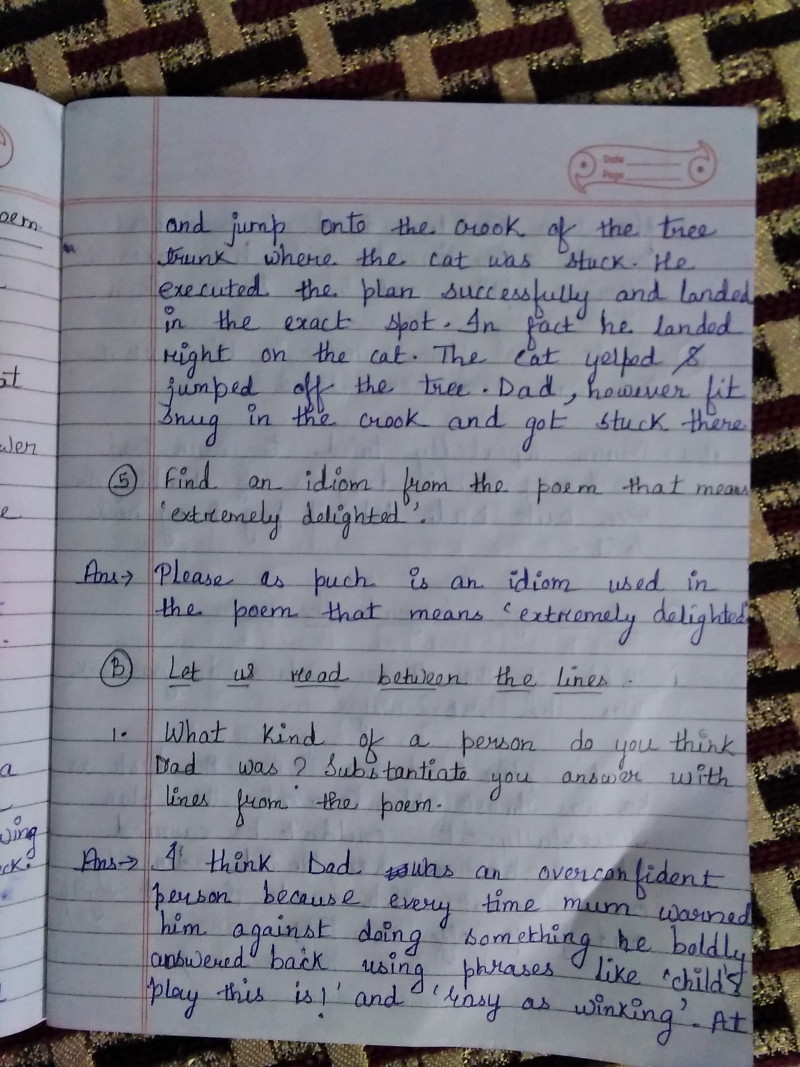 Date
Page
and jump onto the crook of the tree
trunk where the cat was stuck. He
executed the plan successfully and landed
in the exact spot. In fact he landed
right on the cat. The cat yelped &
jumped off the tree. Dad, however fit
snug in the crook and got stuck there
5 Find an idiom from the poem that means
'extremely delighted'.
Ans→ Please as puch is an idiom used in
the poem that means 'extremely delighted'
B Let us read between the lines.
1. What kind of a person do you think
Dad was? Substantiate you answer with
lines from the poem.
Ans→ I think Dad was an overconfident
person because every time mum warned
him against doing something he boldly
answered back using phrases like 'child's
play this is!' and 'easy as winking'. At
oem
at
wer
e
a
wing
ck.